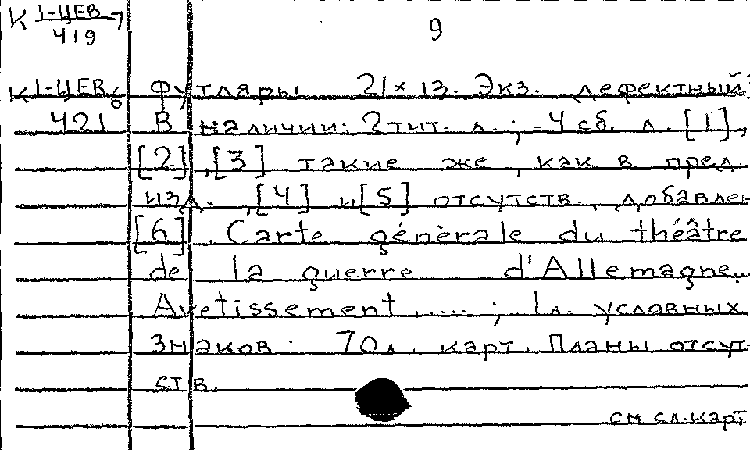 К 1-ЦЕВ 7
419
9
К 1-ЦЕВ 6 Футляры 21×13. Экз. дефектный.
421 В наличии: 2 тит. л.; 4 сб. л. [1],
[2], [3] такие же, как в пред.
изд., [4] и [5] отсутств., добавлен
[6]. Carte générale du théâtre
de la guerre d'Allemagne.
Avetissement.....; 1 л. условных
знаков. 70 л. карт. Планы отсут-
ств.
см сл. карт